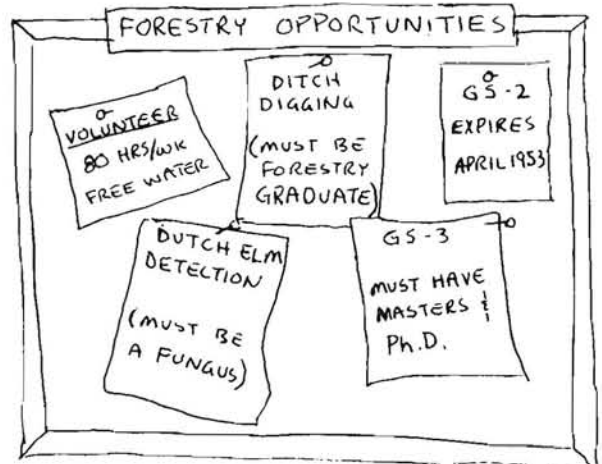 FORESTRY OPPORTUNITIES
VOLUNTEER
80 HRS/WK
FREE WATER
DITCH
DIGGING
(MUST BE
FORESTRY
GRADUATE)
GS-2
EXPIRES
APRIL 1953
DUTCH ELM
DETECTION
(MUST BE
A FUNGUS)
GS-3
MUST HAVE
MASTERS &
Ph.D.